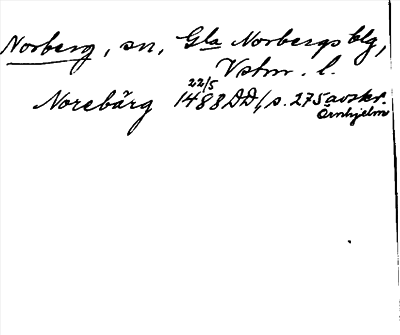 Norberg, sn, Gla Norbergs blg,
Vstm. l.
Norebärg 22/5 1488 DD/s. 275 avskr.
Örnhjelm